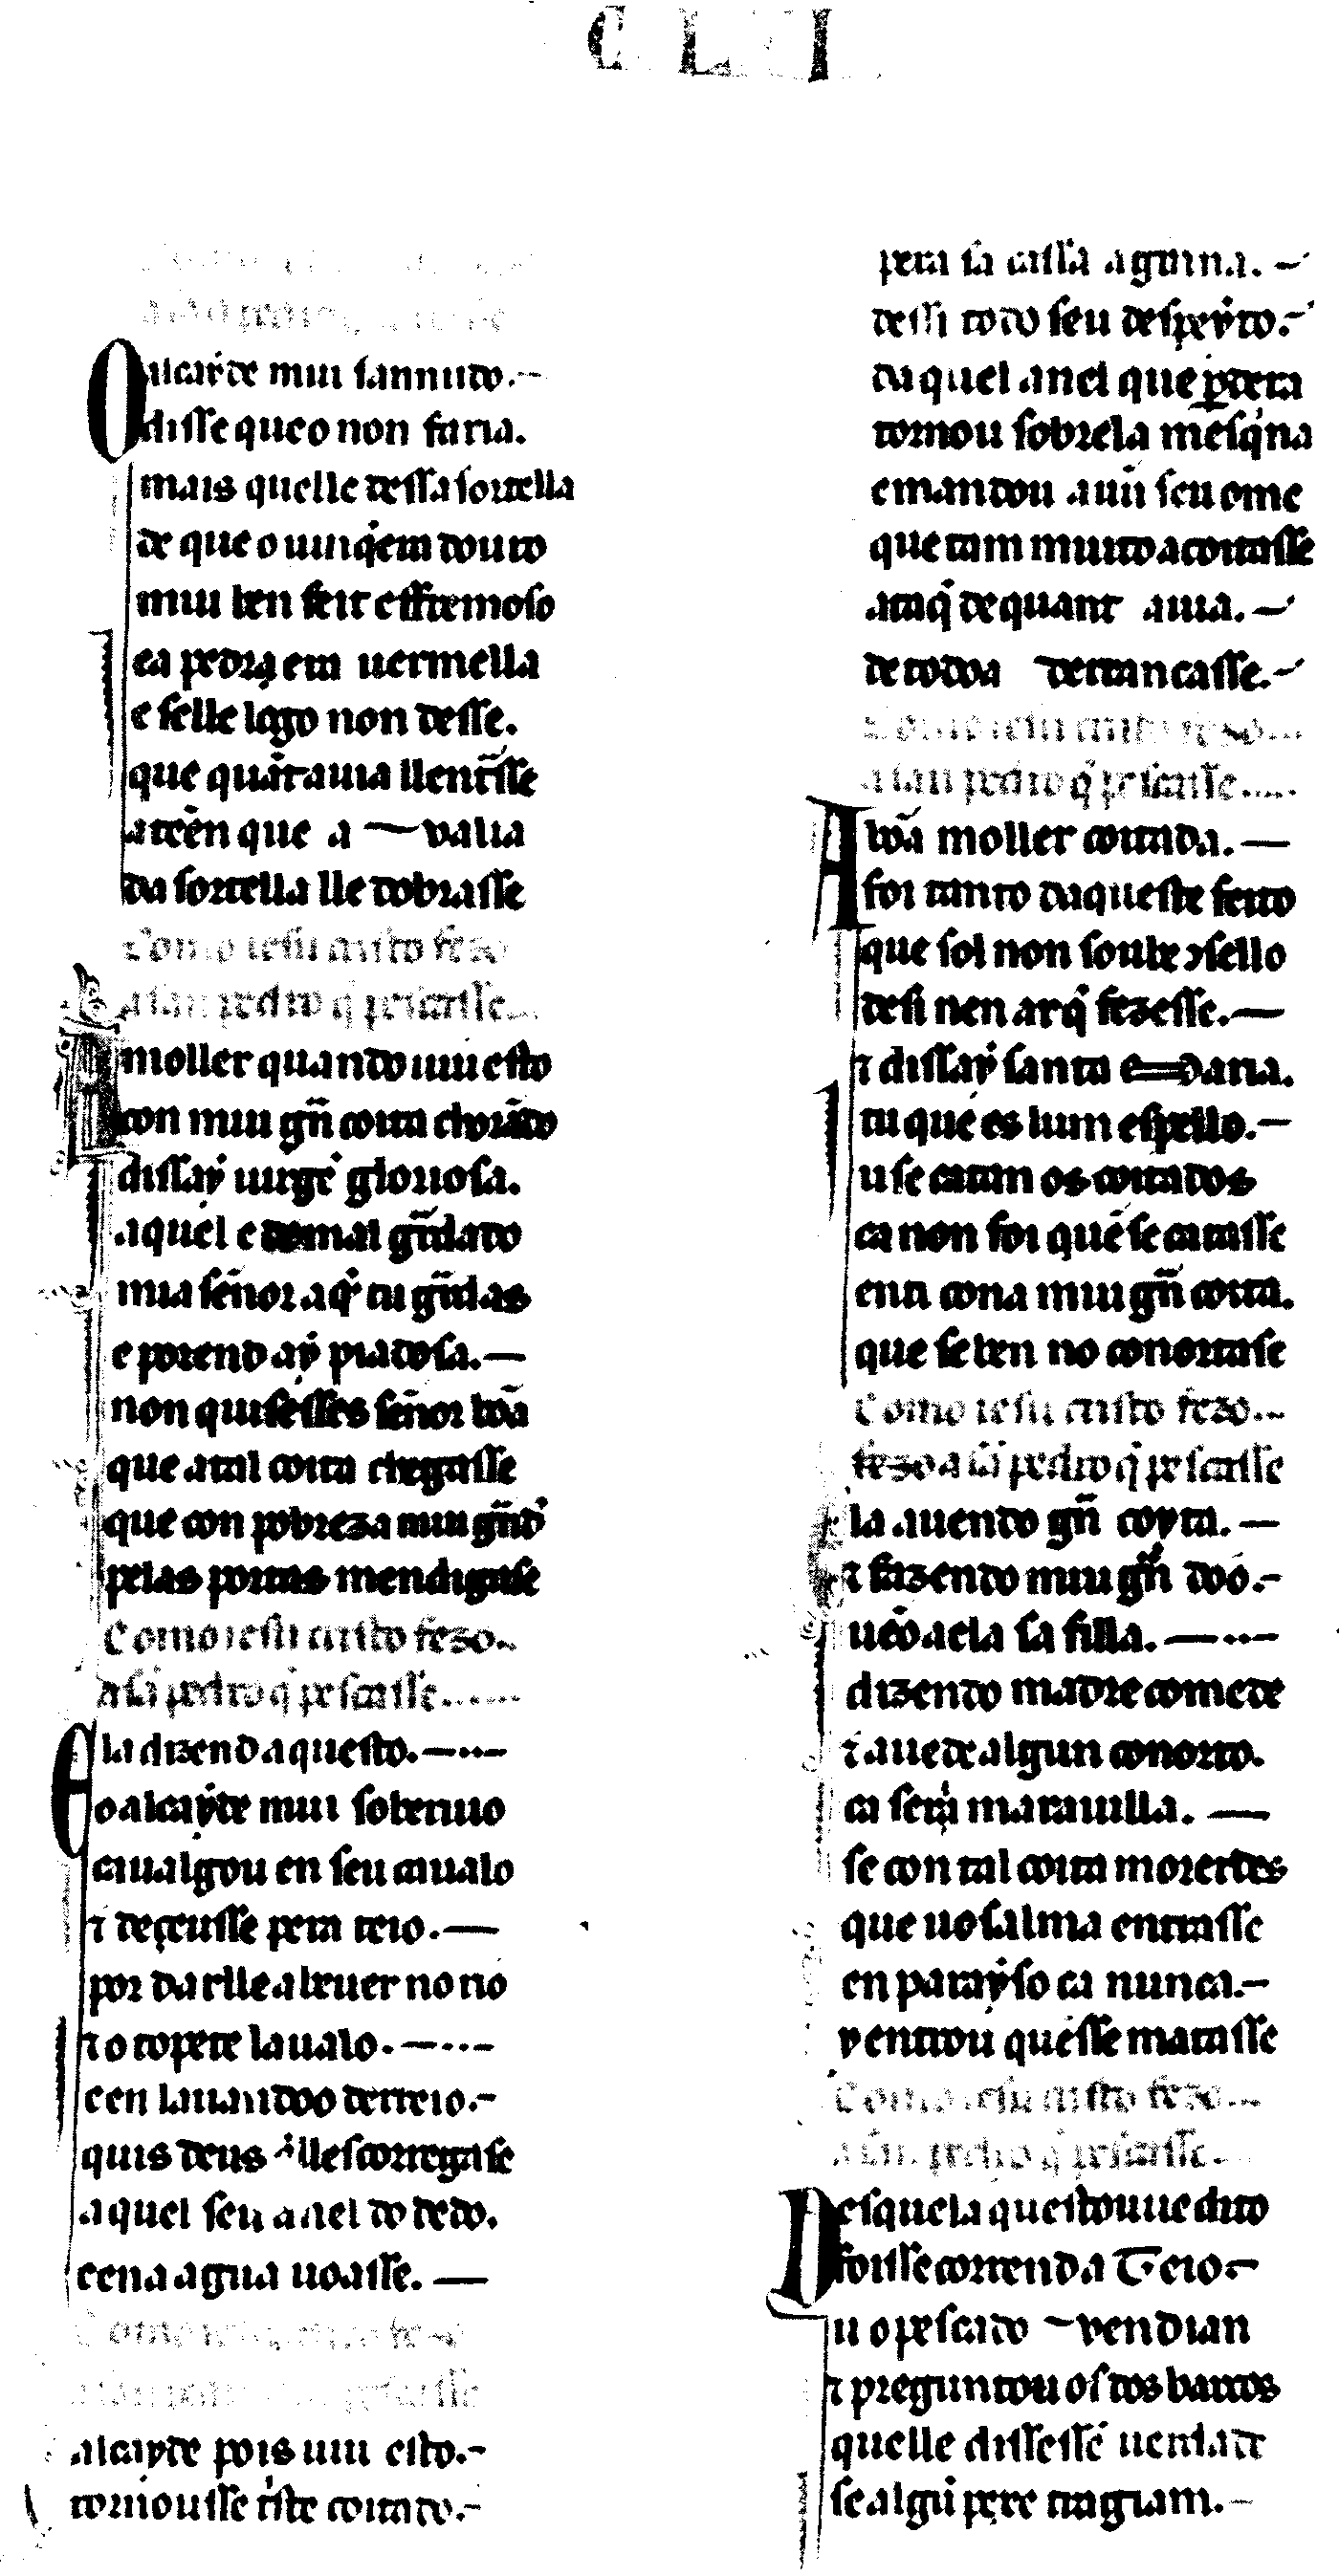 C L I
O alcayde mui sannudo.~
disse queo non faria.
mais quelle dessa sortella
de que o uin q̇em douto
mui ben feit e ffremoso
ea pedra em uermella
e selle logo non desse.
que quarẽtauia llentrasse
a tẽen que a ~ valia
da sortella lle dobrasse
Como iesu cristo fezo
a san pedro q̇ pescasse...
A moller quando uiu esto
con mui gr̃n coita chorãdo
dissaẏ uirgẽ gloriosa.
aquel e do mal gr̃dado
mia sẽnor aq̇ tu gr̃das
e porend aẏ piadosa.—
non quisesses sẽnor bõa
que atal coita chegasse
que con pobreza mui gr̃nd'
pelas portas mendigase
Como iesu cristo fezo..
a sã pedro q̇ pescasse......
Ela dizend aquesto.—··—
o alcaẏde mui soberuio
caualgou en seu caualo
⁊ deçeusse pera reio.—
por darlle a beuer no rio
⁊ o topete laualo.—···—
een lauandoo derreio.~
quis deus llescorregase
aquel seu anel do dedo.
eena agua uoasse. —
Como fezo
alcayde pois uiu esto.~
tornousse triste coitado.~
pera sa cassa aginna.~
dessi todo seu despeẏto.~
daquel anel que ꝑdera
tomou sobrela mesq̇na
emandou a un seu ome
que tam muito acoitasse
ataq̇ de quant auia.~
de todoa derrancasse.~
Como iesu cristo fezo...
a san pedro q̇ pescasse.....
A bõa moller coitada.—
foi tanto daqueste feito
que sol non soube ↄsello
desi nen arq̇ fezesse.—
⁊ dissaẏ santa Maria.
tu que es lum espello.—
u se catam os coitados
ca non foi quẽ se catasse
enti cona mui gr̃n coita.
que se ben no conortase
Como iesu cristo fezo...
fezo a sã pedro q̇ pescasse
Ela auendo gr̃n coyta.—
⁊ fazendo mui gr̃n doo.~
uẽo aela sa filla.—··—
dizendo madre comede
⁊ auede algun conorto.
ca será marauilla. —
se con tal coita morerdes
que uosalma entrasse
en paraẏso ca nunca.~
y entrou quesse matasse
Como iesu cristo fezo...
a san pedro q̇ pescasse.
Desquela questouue dito
foisse correnda Ꞇ·eio~
u o pescado ~ vendian
⁊ preguntou os dos barcos
quelle dissessẽ uerdade
se algũ pexe tragiam.~